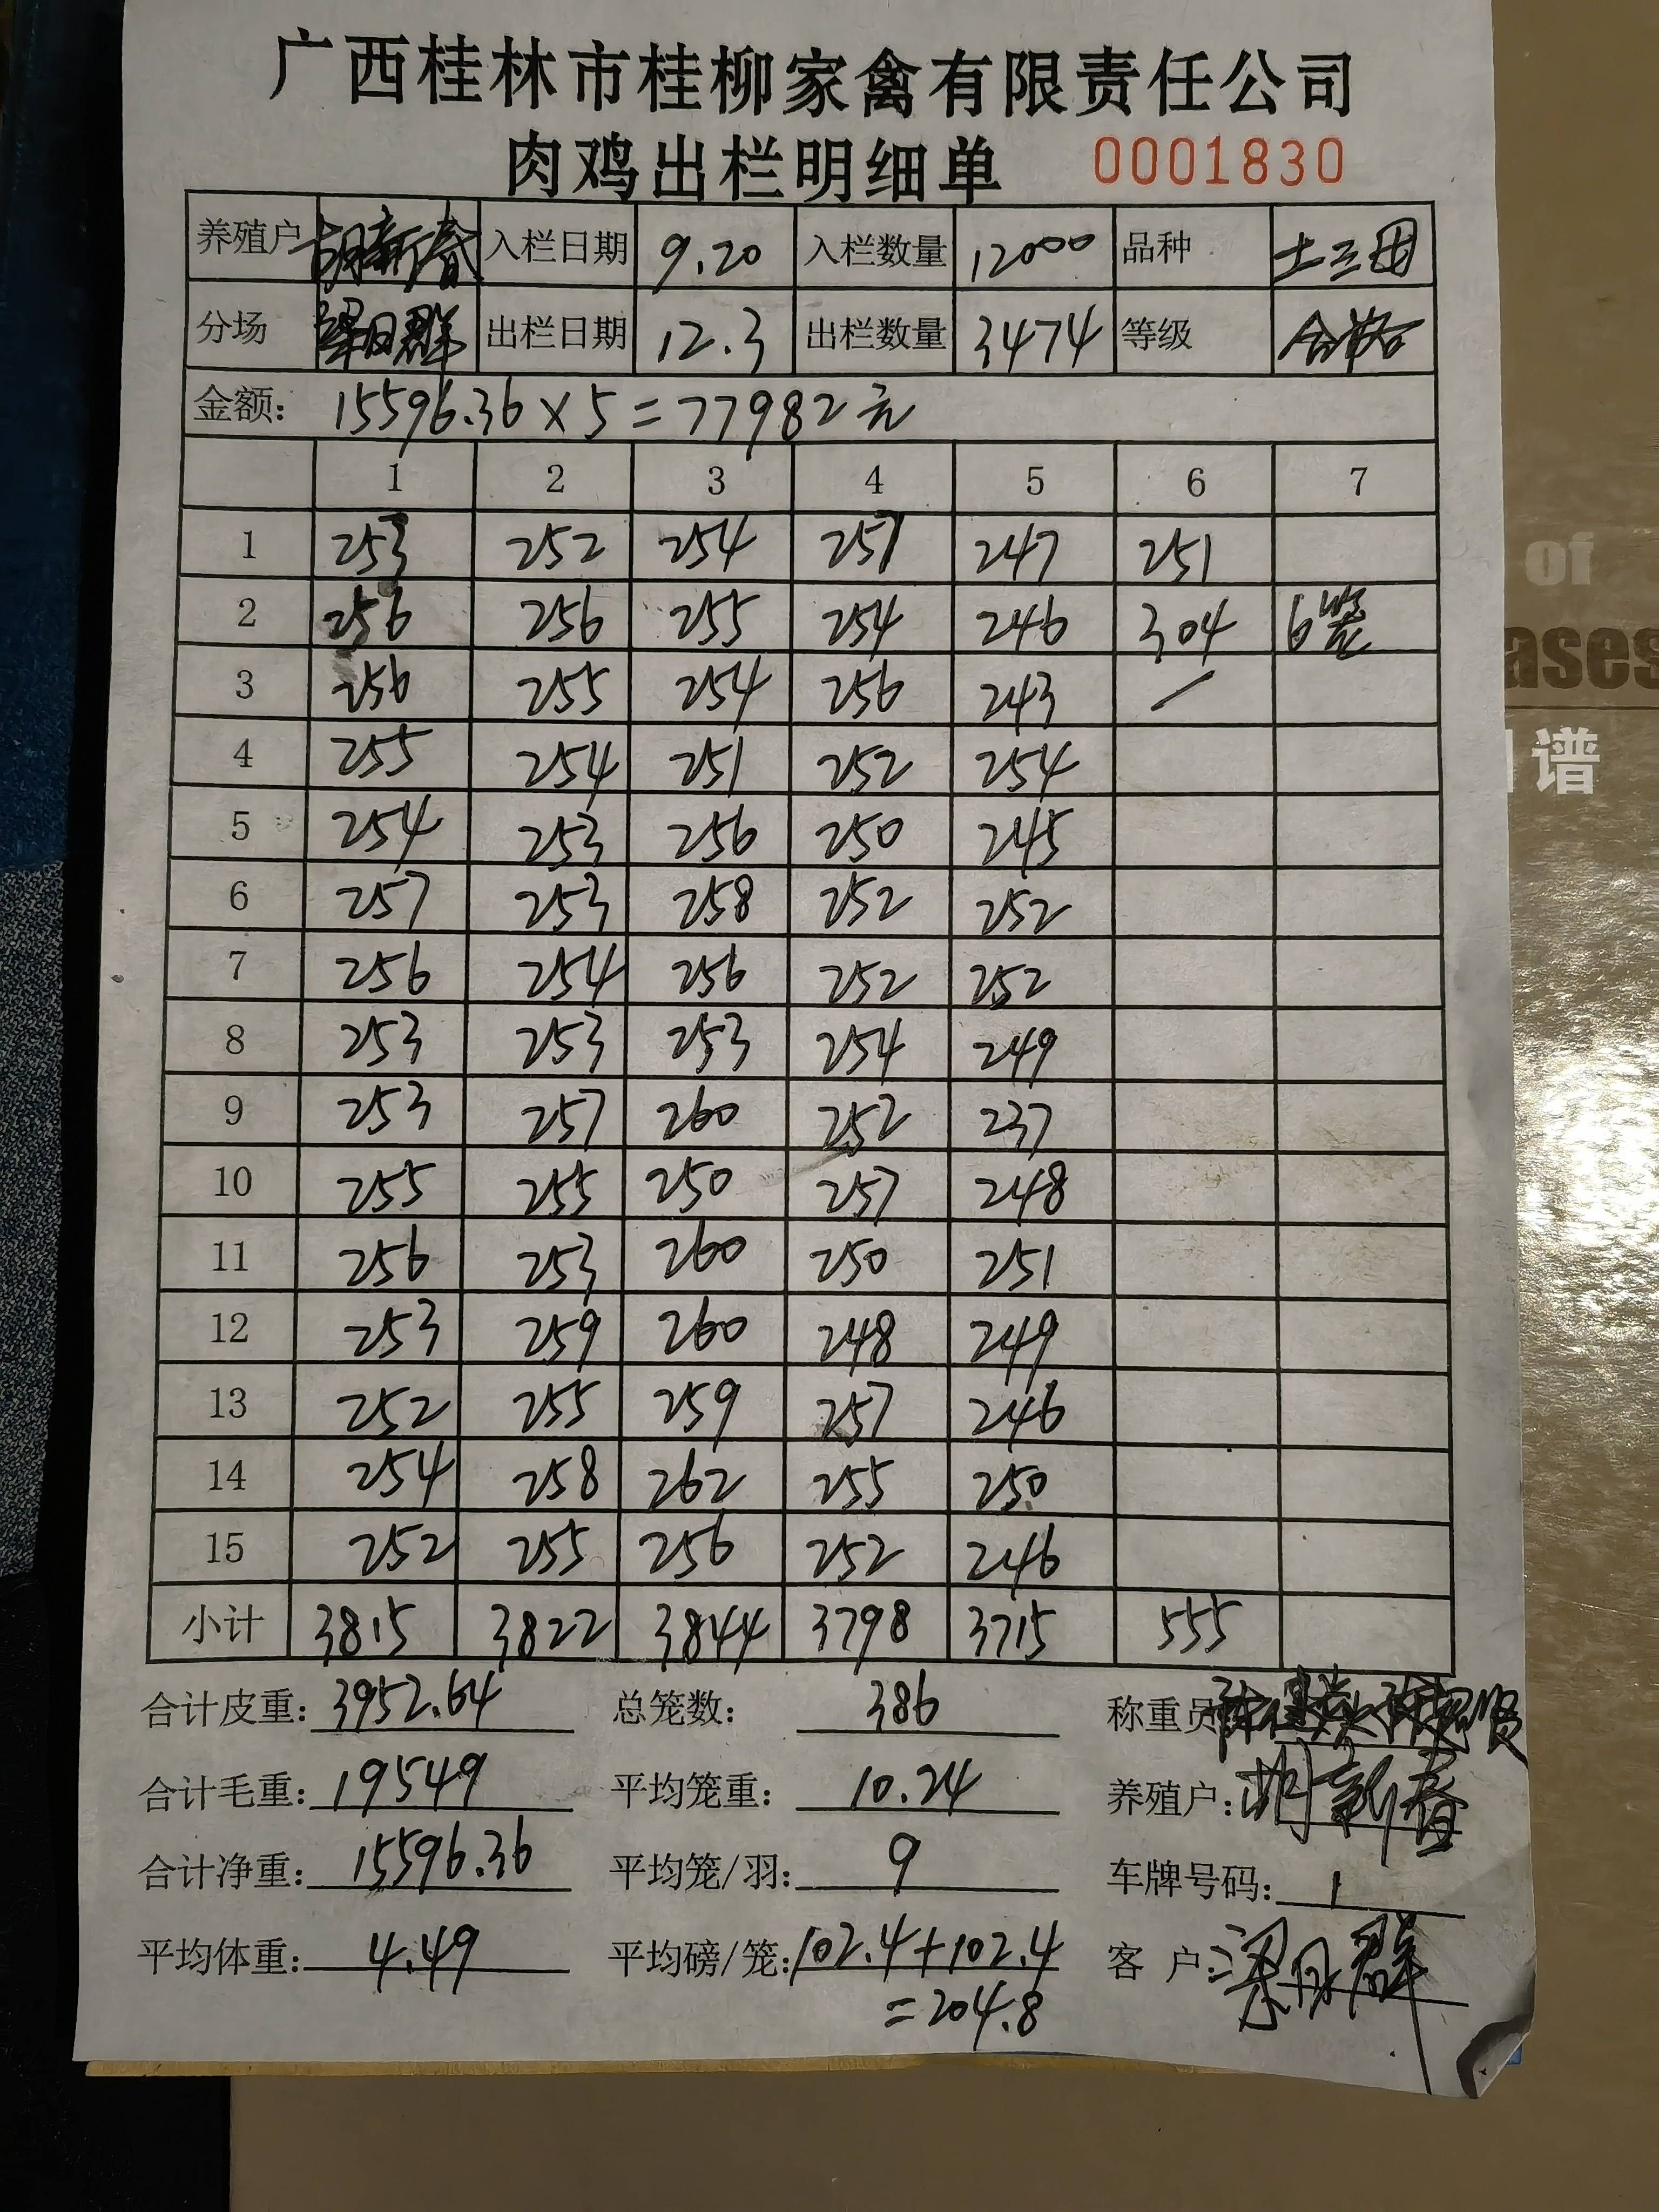 广西桂林市桂柳家禽有限责任公司
肉鸡出栏明细单 0001830
养殖户 胡新春 入栏日期 9.20 入栏数量 12000 品种 土三田
分场 梁月群 出栏日期 12.3 出栏数量 3474 等级 合格
金额: 15596.36×5=77982元
1 2 3 4 5 6 7
1 253 252 254 257 247 251
2 256 256 255 254 246 304 6笼
3 256 255 254 256 243 /
4 255 254 251 252 254
5 254 253 256 250 245
6 257 253 258 252 252
7 256 254 256 252 252
8 253 253 253 254 249
9 253 257 260 252 237
10 255 255 250 257 248
11 256 253 260 250 251
12 253 259 260 248 249
13 252 255 259 257 246
14 254 258 262 255 250
15 252 255 256 252 246
小计 3815 3822 3844 3798 3715 555
合计皮重: 3952.64 总笼数: 386 称重员
合计毛重: 19549 平均笼重: 10.24 养殖户: 胡新春
合计净重: 15596.36 平均笼/羽: 9 车牌号码: 1
平均体重: 4.49 平均磅/笼: 102.4+102.4 客 户: 梁月群
=204.8
of
ases
谱